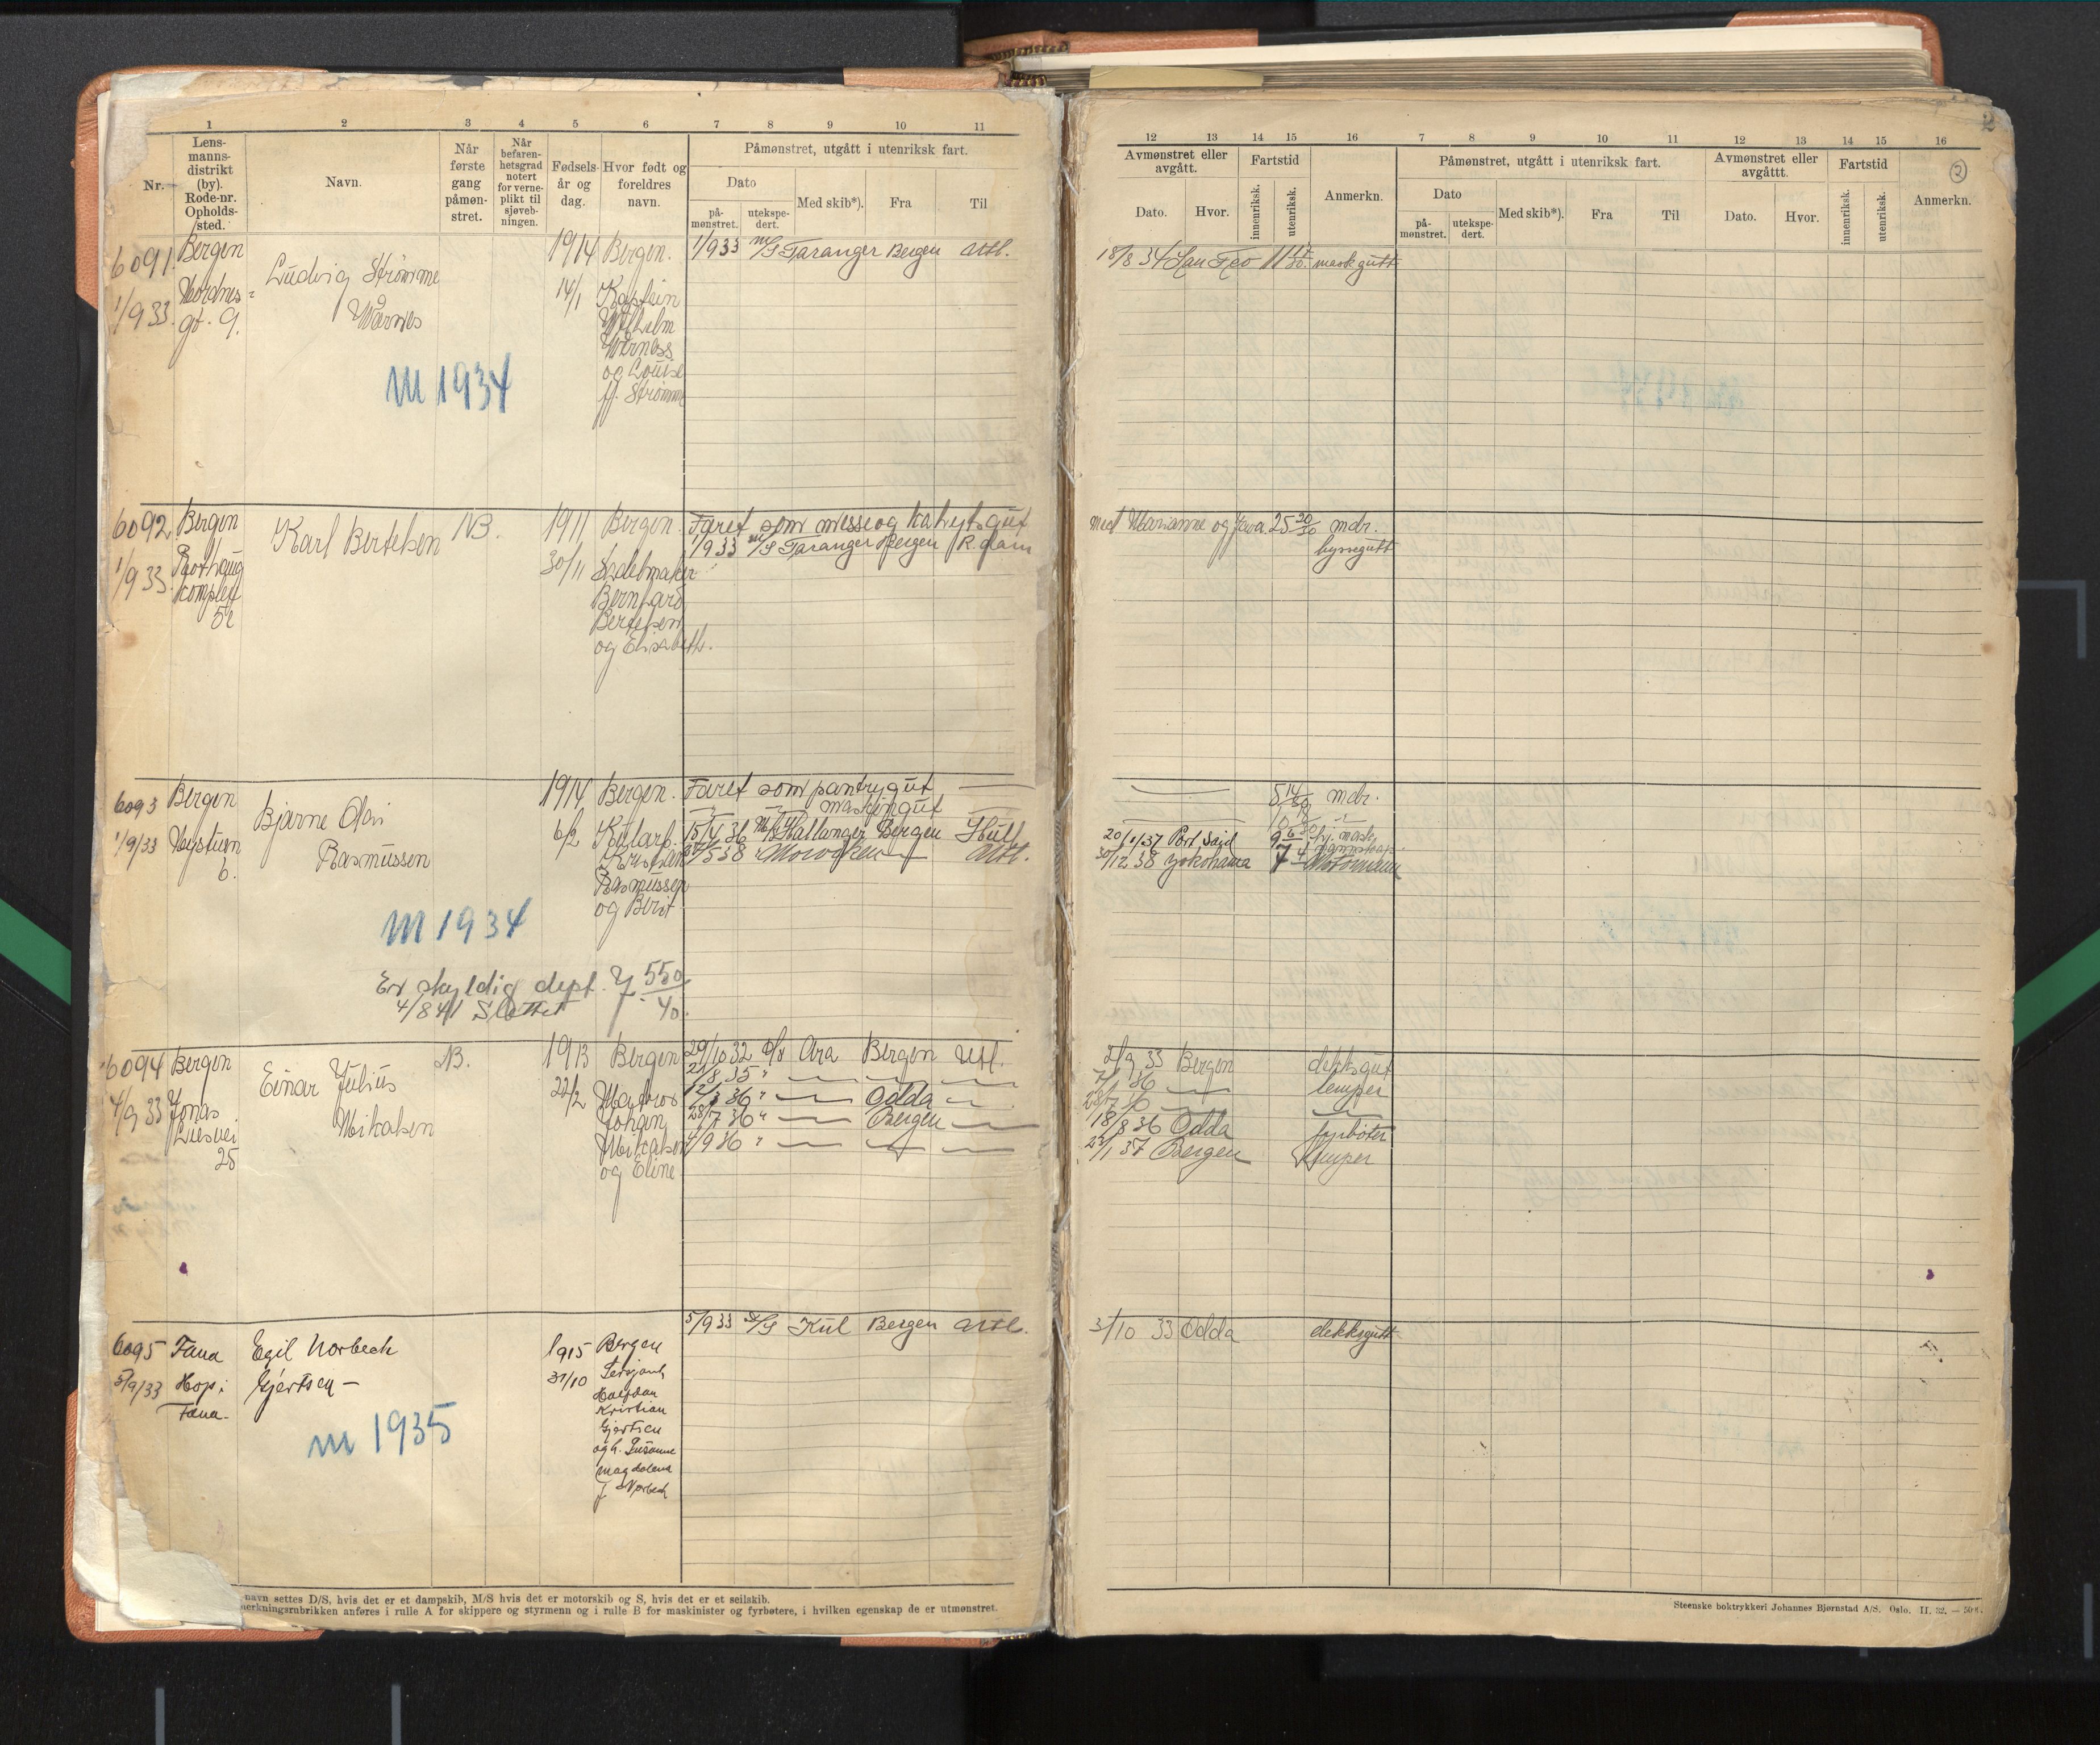 1 2 3 4 5 6 7 8 9 10 11
Nr.
Lens-
manns-
distrikt
(by).
Rode-nr.
Opholds-
sted.
Navn.
Når
første
gang
påmøn-
stret.
Når
befaren-
hetsgrad
notert
for verne-
plikt til
sjøveb-
ningen.
Fødsels-
år og
dag.
Hvor født og
foreldres
navn.
Påmønstret, utgått i utenriksk fart.
Dato
på-
mønstret.
utekspe-
dert.
Med skib*).
Fra
Til
6091. Bergen
1/9 33. Nordnes-
gt. 9.
Ludvig Strømme
Warnes
M 1934
1914
14/1
Bergen.
Kaptein
Wilhelm
Warness
og Louise
f. Strømme
1/9 33 M/S Taranger Bergen Utl.
6092 Bergen
1/9 33.
komplex
52
Karl Bertelsen
NB.
1911
30/11
Bergen.
Sadelmaker
Bernhard
Bertelsen
og Elisabeth.
Faret som messe og
1/9 33 M/S Taranger Bergen
6093 Bergen
1/9/33 Nystuen
6.
Bjarne Olai
Rasmussen
M 1934
Er skyldig dept. 550
4/8 41 Slottet 40.
1914
6/2
Bergen.
Kularb.
Kristian
Rasmussen
og Berit
Faret som pantrygut
maskingut
15/4 36 M/S Hallanger Bergen Hull
5 38 Utl.
6094 Bergen
4/9 33 Jonas
Liesvei
25
Einar Julius
Mikalsen
NB.
1913
22/2
Bergen
Johan
Mikalsen
og Eline
29/10 32 D/S Ara Bergen Utl.
21/8 35 "
12/3 36 " Odda
28/7 36 " Bergen
4/9 36 "
6095 Fana
5/9/33 Hop i
Fana
Egil Norbech
Gjertsen
M 1935
1915
31/10
Bergen
Sersjant
Halfdan
Kristian
Gjertsen
og h. Susanne
Magdalena
f. Norbech
5/9 33 D/S Kul Bergen Utl.
navn settes D/S, hvis det er et dampskib, M/S hvis det er motorskib og S, hvis det er et seilskib.
erkningsrubrikken anføres i rulle A for skippere og styrmenn og i rulle B for maskinister og fyrbøtere, i hvilken egenskap de er utmønstret.
2
12 13 14 15 16 7 8 9 10 11 12 13 14 15 16
Avmønstret eller
avgått.
Dato.
Hvor.
Fartstid
innenriksk.
utenriksk.
Anmerkn.
Påmønstret, utgått i utenriksk fart.
Dato
på-
mønstret.
utekspe-
dert.
Med skib*).
Fra
Til
Avmønstret eller
avgåttt.
Dato.
Hvor.
Fartstid
innenriksk.
utenriksk.
Anmerkn.
2
18/8 34 San Feo 11 mask gutt
med Marianne og Java 25 20/30 mdr.
byssegutt
5 14/30 mdr.
20/1/37 Port Said 9
/12 38 Yokohama 7 Motormann
2/9 33 Bergen dekksgut
7/1 36 lemper
28/7 36
18/8 36 Odda fyrbøter
23/1 37 Bergen lemper
3/10 33 Odda dekksgutt
Steenske boktrykkeri Johannes Bjørnstad A/S. Oslo. II. 32.